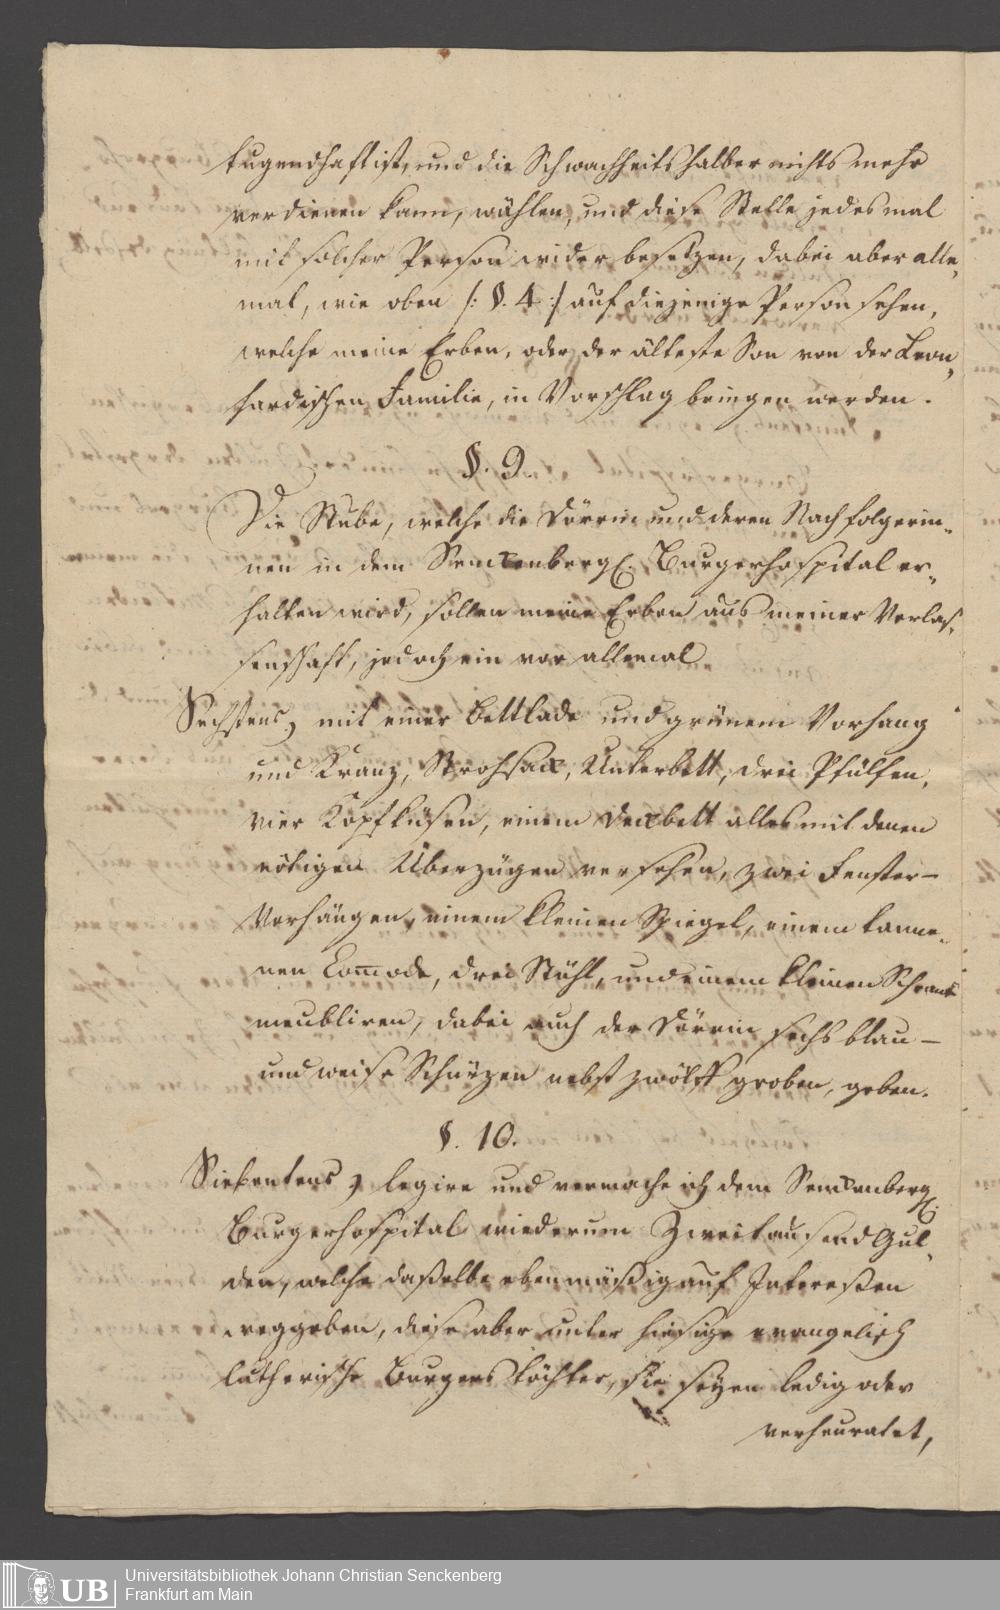 tugendhaft ist, und die Schwachheits halber nichts mehr
verdienen kann, wählen, und diese Stelle jedesmal
mit solcher Person wider besetzen, dabei aber alle-
mal, wie oben /: §. 4 :/ auf diejenige Person sehen,
welche meine Erben, oder der älteste Son von der Leon-
hardischen Familie, in Vorschlag bringen werden.
§. 9.
Die Stube, welche die Dörrin und deren Nachfolgerin-
nen in dem Senckenbergs. Burgerhospital er-
halten wird, sollen meine Erben aus meiner Verlas-
senschaft, jedoch ein vor allemal
Sechstens, mit einer Bettlade und grünem Vorhang
und Kranz, Strohsack, Unterbett, drei Pfülfen,
vier Kopfküsen, einem Deckbett alles mit denen
nötigen Überzügen versehen, zwei Fenster-
Vorhängen, einem kleinen Spiegel, einem tanne-
nen Com̅ode, drei Stühl, und einem kleinen Schrank
meubliren, dabei auch der Dörrin sechs blau-
und weise Schürzen nebst zwölff groben, geben.
§. 10.
Siebentens, legire und vermache ich dem Senckenbergs.
Burgerhospital wiederum Zweitausend Gul-
den, welche daßelbe ebenmäßig auf Intereßen
weggeben, diese aber unter hiesige evangelisch
lutherische Burgers töchter, sie seyen ledig oder
verheuratet,
UB
Universitätsbibliothek Johann Christian Senckenberg
Frankfurt am Main